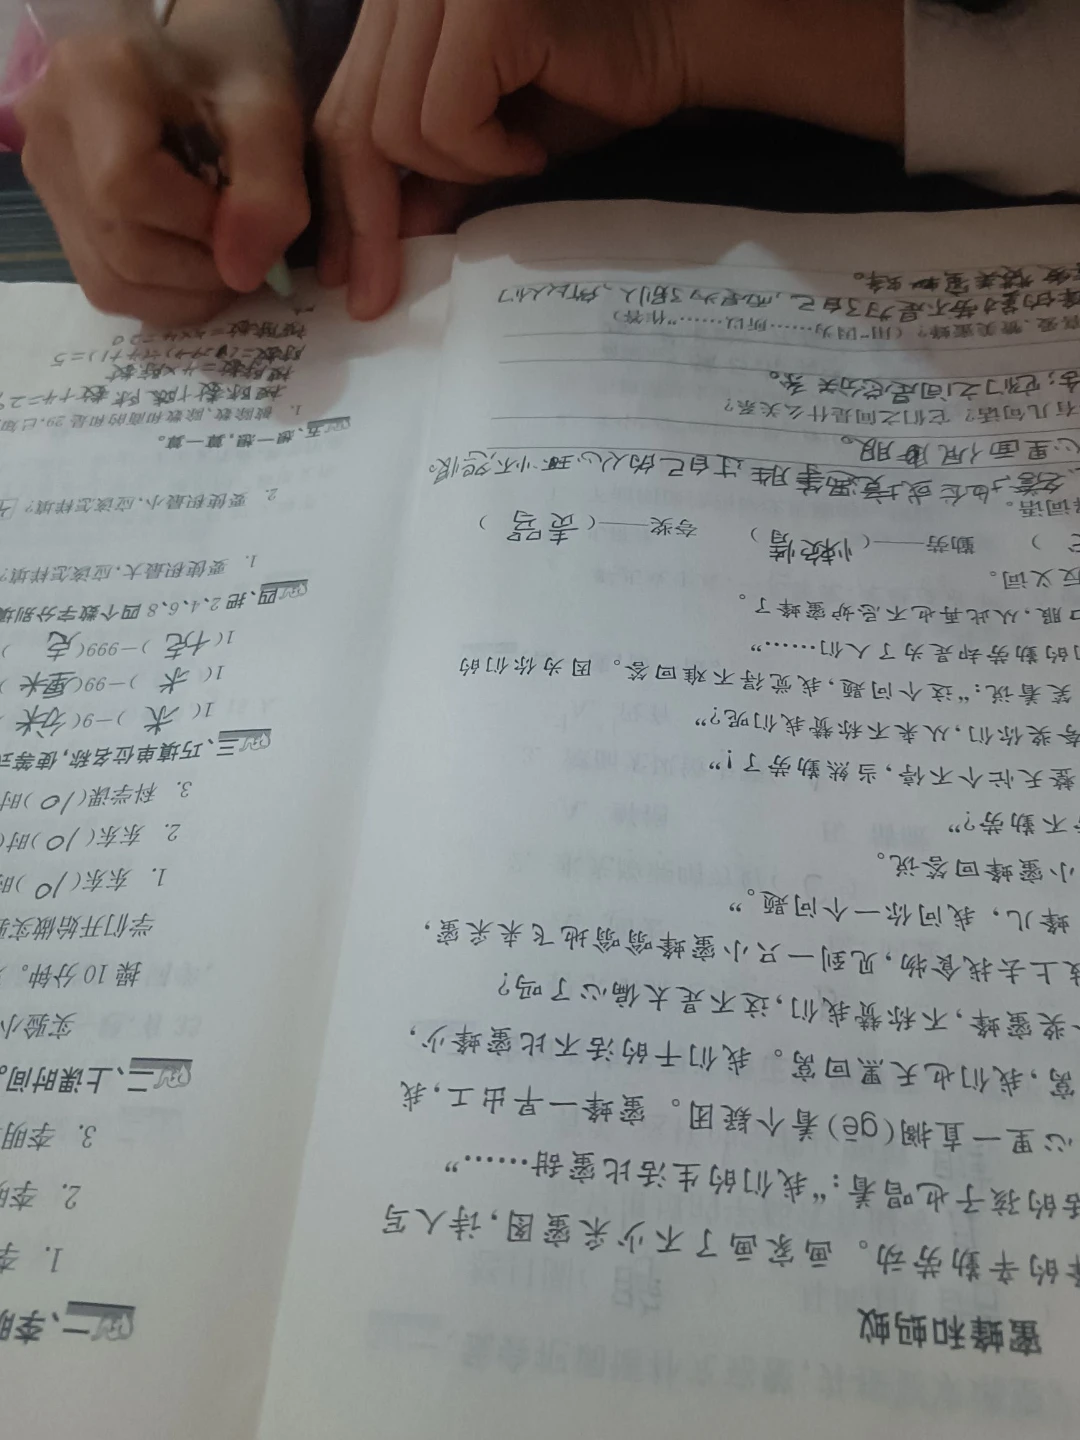 蜜蜂和蚂蚁
的辛勤劳动。画家画了不少采蜜图,诗人写
的孩子也唱着:“我们的生活比蜜甜……”
心里一直搁(gē)着个疑团。蜜蜂一早出工,我
窝,我们也天黑回窝。我们干的活不比蜜蜂少,
奖蜜蜂,不称赞我们,这不是太偏心了吗?
上去找食物,见到一只小蜜蜂嗡嗡地飞来采蜜,
蜂儿,我问你一个问题。”
小蜜蜂回答说。
不勤劳?”
整天忙个不停,当然勤劳了!”
夸奖你们,从来不称赞我们呢?”
笑着说:“这个问题,我觉得不难回答。因为你们的
的勤劳却是为了人们……”
口服,从此再也不忌妒蜜蜂了。
反义词。
) 勤劳——(懒惰) 夸奖——(责骂)
词语。
心里面佩服。
有几句话?它们之间是什么关系?
它们之间是总分关系。
喜爱、赞美蜜蜂?(用“因为……所以……”作答)
的勤劳不是为了自己,而是为了别人,所以人们
一、李明
1. 李
2. 李明
3. 李明
二、上课时间。
实验小
操10分钟。
学们开始做实验
1. 东东(10)时
2. 东东(10)时(
3. 科学课(10)时
三、巧填单位名称,使等式
1(米)-9(分米
1(米)-99(厘米)
1(千克)-999(克)
四、把2、4、6、8四个数字分别填
1. 要使积最大,应该怎样填?
2. 要使积最小,应该怎样填?
五、想一想,算一算。
1. 被除数、除数和商的和是29,已知
被除数+除数+4=29
被除数=4×除数
除数=(29-4)÷(4+1)=5
被除数=5×4=20